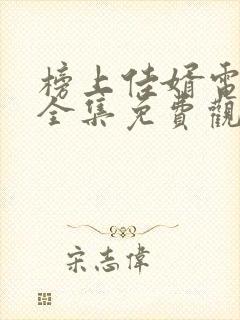 榜上佳婿電
全集免費觀
宋志偉